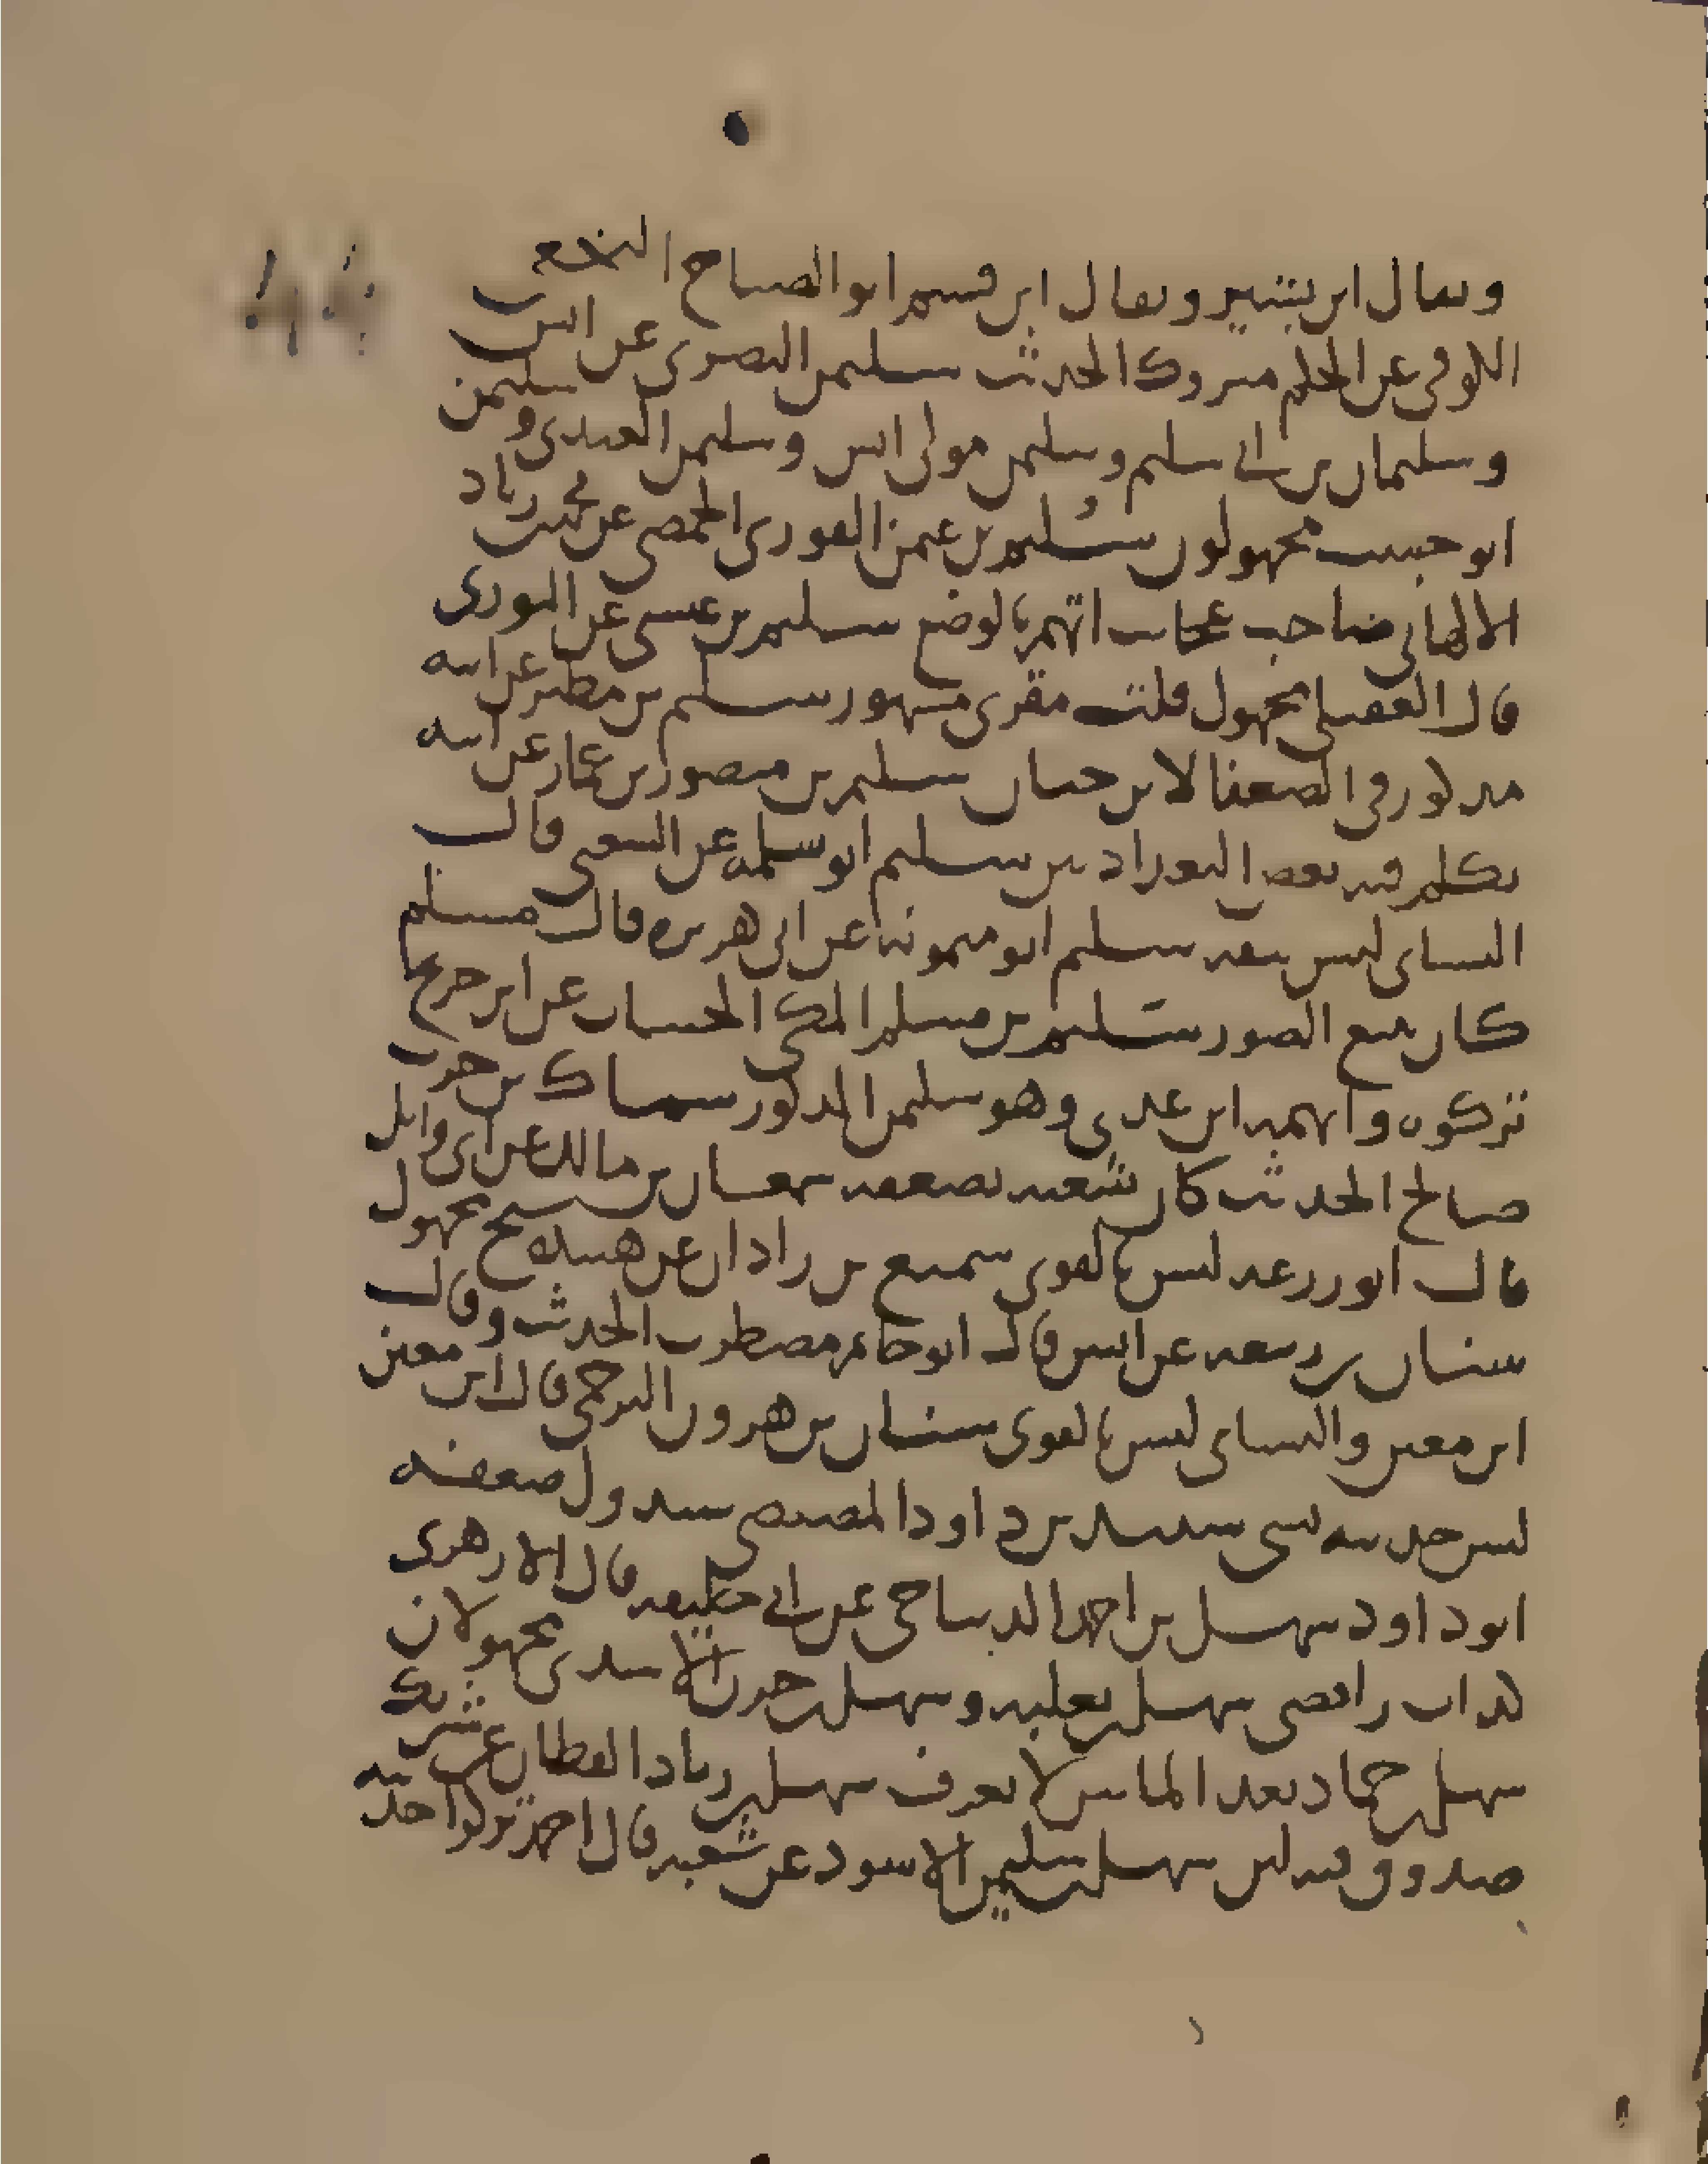 ويقال ابن بشير ويقال ابن قسيم ابو الصباح النخعي
الكوفي عن الحكم متروك الحديث سليمن البصري عن انس
وسليمان بن ابي سليم وسليمن مولى انس وسليمن العبدي وسليمن
ابو حبيب مجهولون سليم بن عثمن الفوزي الحمصي عن محمد بن زياد
الالهاني صاحب عجائب اتهم بالوضع سليم بن عيسى عن الثوري
قال العقيلي مجهول قلت مقرئ مشهور سليم بن مطير عن ابيه
مذكور في الضعفا لابن حبان سليم بن منصور بن عمار عن ابيه
تكلم فيه بعض البغداديين سليم ابو سلمه عن الشعبي قال
النسائي ليس بثقه سليم ابو ميمونه عن ابي هريره قال مسلم
كان يبيع الصور سليم بن مسلم المكي الخشاب عن ابن جريج
تركوه واتهمه ابن عدي وهو سليمن المذكور سماك بن حرب
صالح الحديث كان شعبه يضعفه سمعان بن مالك عن ابي وائل
قال ابو زرعه ليس بالقوي سميع بن زاذان عن شيخ مجهول
سنان بن ربيعه عن انس قال ابو حاتم مضطرب الحديث وقال
ابن معين والنسائي ليس بالقوي سنان بن هرون البرجمي قال ابن معين
ليس حديثه بشي سنيد بن داود المصيصي سيد ول ضعفه
ابو داود سهل بن احمد الديباجي عن ابي خليفه قال الازهري
كذاب رافضي سهل بن ثعلبه وسهل بن حزن الاسدي مجهولان
سهل بن حماد بعد الماتين لا يعرف سهل بن زياد القطان عن شريك
صدوق فيه لين سهل بن سليمن الاسود عن شعبه قال احمد تركوا حديثه